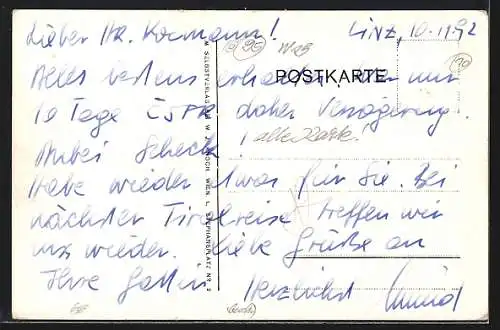 Lieber Hr. Kormann! Linz, 10.11.92
POSTKARTE.
Alles bestens erhalten, war nur
10 Tage daher Verzögerung.
alte Karte!
Anbei Scheck!
Habe wieder etwas für Sie. Bei
nächster Tirolreise treffen wir
uns wieder. Liebe Grüße an
Ihre Gattin
Herzlichst
SELBSTVERLAG WIEN, I., STEPHANSPLATZ NR.